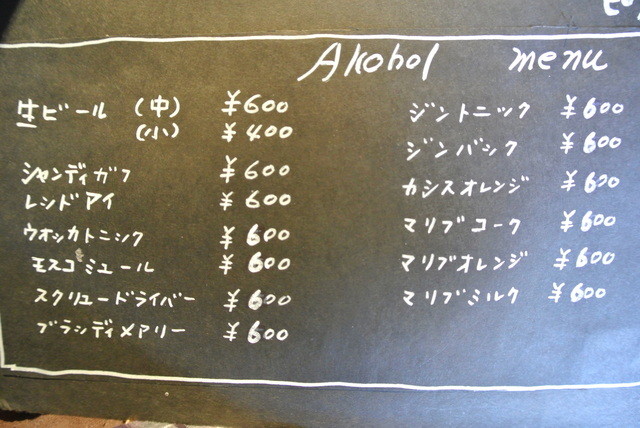 Alcohol menu
生ビール (中) ¥600
(小) ¥400
シャンディガフ ¥600
レッドアイ ¥600
ウオッカトニック ¥600
モスコミュール ¥600
スクリュードライバー ¥600
ブラッディメアリー ¥600
ジントニック ¥600
ジンバック ¥600
カシスオレンジ ¥600
マリブコーク ¥600
マリブオレンジ ¥600
マリブミルク ¥600